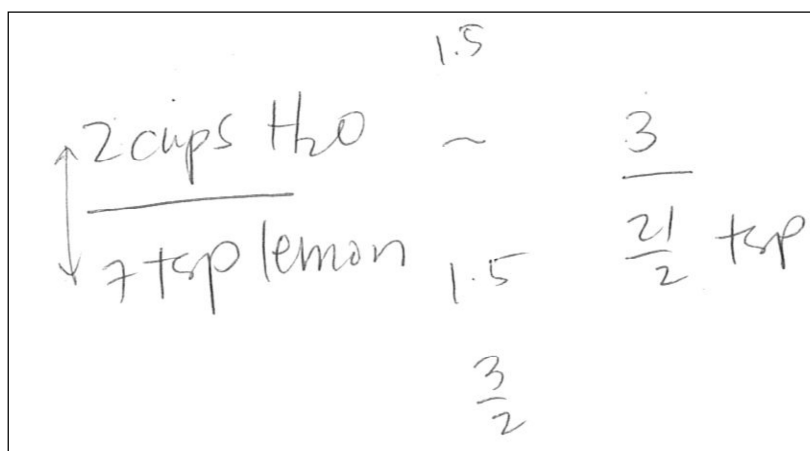 1.5
2 cups H₂O ~ 3
7 tsp lemon 1.5 21/2 tsp
3/2